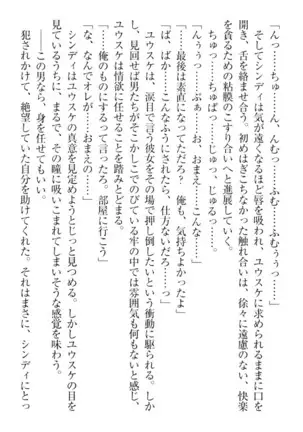 「んっ……ちゅ……ん、んむっ……ふむ、ふむぅぅっ……」
そしてシンディは気が遠くなるほど唇を吸われ、ユウスケに求められるままに口を
開き、舌を絡ませ合う。初めはぎこちなかった触れ合いは、徐々に遠慮のない、快楽
を貪るための粘膜のこすり合いへと進展していく。
「ちゅっ……ちゅぱっ……じゅっ、じゅるっ……。
「んぅぅっ……ぷぁ、お、おまえ……こんな……」
「……最後は素直になってただろ？ 俺も、気持ちよかったよ」
「ば、ばかっ……こんなふうにされたら、仕方ないだろ……っ」
ユウスケは、涙目で言う彼女をその場で押し倒したいという衝動に駆られる。しか
し、見回せば男たちがそこかしこでのびている牢の中では雰囲気も何もないと感じ、
ユウスケは情欲に任せることを踏みとどまる。
「……俺のものにするって言ったろ。部屋に行こう」
「な、なんでオレが……おまえの……」
シンディはユウスケの真意を見定めようとじっと見つめる。しかしユウスケの目を
見ているうちに、まるで、その瞳に吸いこまれてしまいそうな感覚を味わう。
――この男なら、身を任せてもいい。
犯されかけて、絶望していた自分を助けてくれた。それはまさに、シンディにとっ